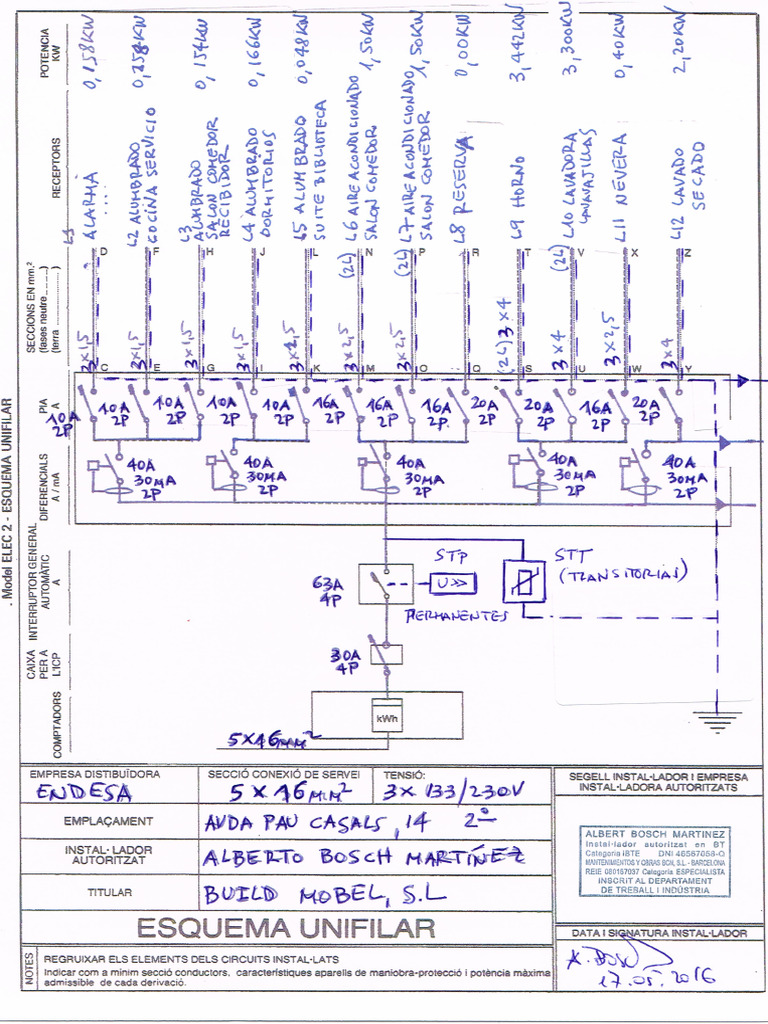 POTENCIA KW
0,158KW
0,258KW
0,154KW
0,166KW
0,048KW
1,50KW
1,50KW
0,00KW
3,442KW
3,300KW
0,40KW
2,20KW
RECEPTORS
L1 ALARMA
L2 ALUMBRADO
COCINA SERVICIO
L3 ALUMBRADO
SALON COMEDOR
RECIBIDOR
L4 ALUMBRADO
DORMITORIOS
L5 ALUMBRADO
SUITE BIBLIOTECA
L6 AIRE ACONDICIONADO
SALON COMEDOR
L7 AIRE ACONDICIONADO
SALON COMEDOR
L8 RESERVA
L9 HORNO
L10 LAVADORA
LAVAVAJILLAS
L11 NEVERA
L12 LAVADO
SECADO
SECCIONS EN mm.²
(fases neutre
(terra
D F H J L N P R T V X Z
3x1,5
3x1,5
3x1,5
3x1,5
3x2,5
(24) 3x2,5
(24) 3x2,5
(24) 3x4
(24) 3x4
3x2,5
3x4
C E G I K M O Q S U W Y
PIA A
10A 2P
10A 2P
10A 2P
10A 2P
10A 2P
16A 2P
16A 2P
16A 2P
20A 2P
20A 2P
16A 2P
20A 2P
DIFERENCIALS
A / mA
40A 30MA 2P
40A 30MA 2P
40A 30MA 2P
40A 30MA 2P
40A 30MA 2P
INTERRUPTOR GENERAL
AUTOMÀTIC
A
63A
4P
STP
U>>
PERMANENTES
STT
(TRANSITORIAS)
CAIXA
PER A
L'ICP
30A
4P
COMPTADORS
kWh
5x16mm²
. Model ELEC 2 - ESQUEMA UNIFILAR
EMPRESA DISTIBUÏDORA
ENDESA
SECCIÓ CONEXIÓ DE SERVEI
5 x 16mm²
TENSIÓ:
3x 133/230V
EMPLAÇAMENT
AVDA PAU CASALS, 14 2º
INSTAL·LADOR
AUTORITZAT
ALBERTO BOSCH MARTÍNEZ
TITULAR
BUILD MOBEL, S.L
ESQUEMA UNIFILAR
NOTES
REGRUIXAR ELS ELEMENTS DELS CIRCUITS INSTAL·LATS
Indicar com a mínim secció conductors, característiques aparells de maniobra-protecció i potència màxima
admissible de cada derivació.
SEGELL INSTAL·LADOR I EMPRESA
INSTAL·LADORA AUTORITZATS
ALBERT BOSCH MARTINEZ
Instal·lador autoritzat en BT
Categoria IBTE DNI 46567058-Q
MANTENIMIENTOS Y OBRAS BCN, S.L - BARCELONA
REIE 080167037 Categoria ESPECIALISTA
INSCRIT AL DEPARTAMENT
DE TREBALL I INDÚSTRIA
DATA I SIGNATURA INSTAL·LADOR
A. Bosch
17.05.2016